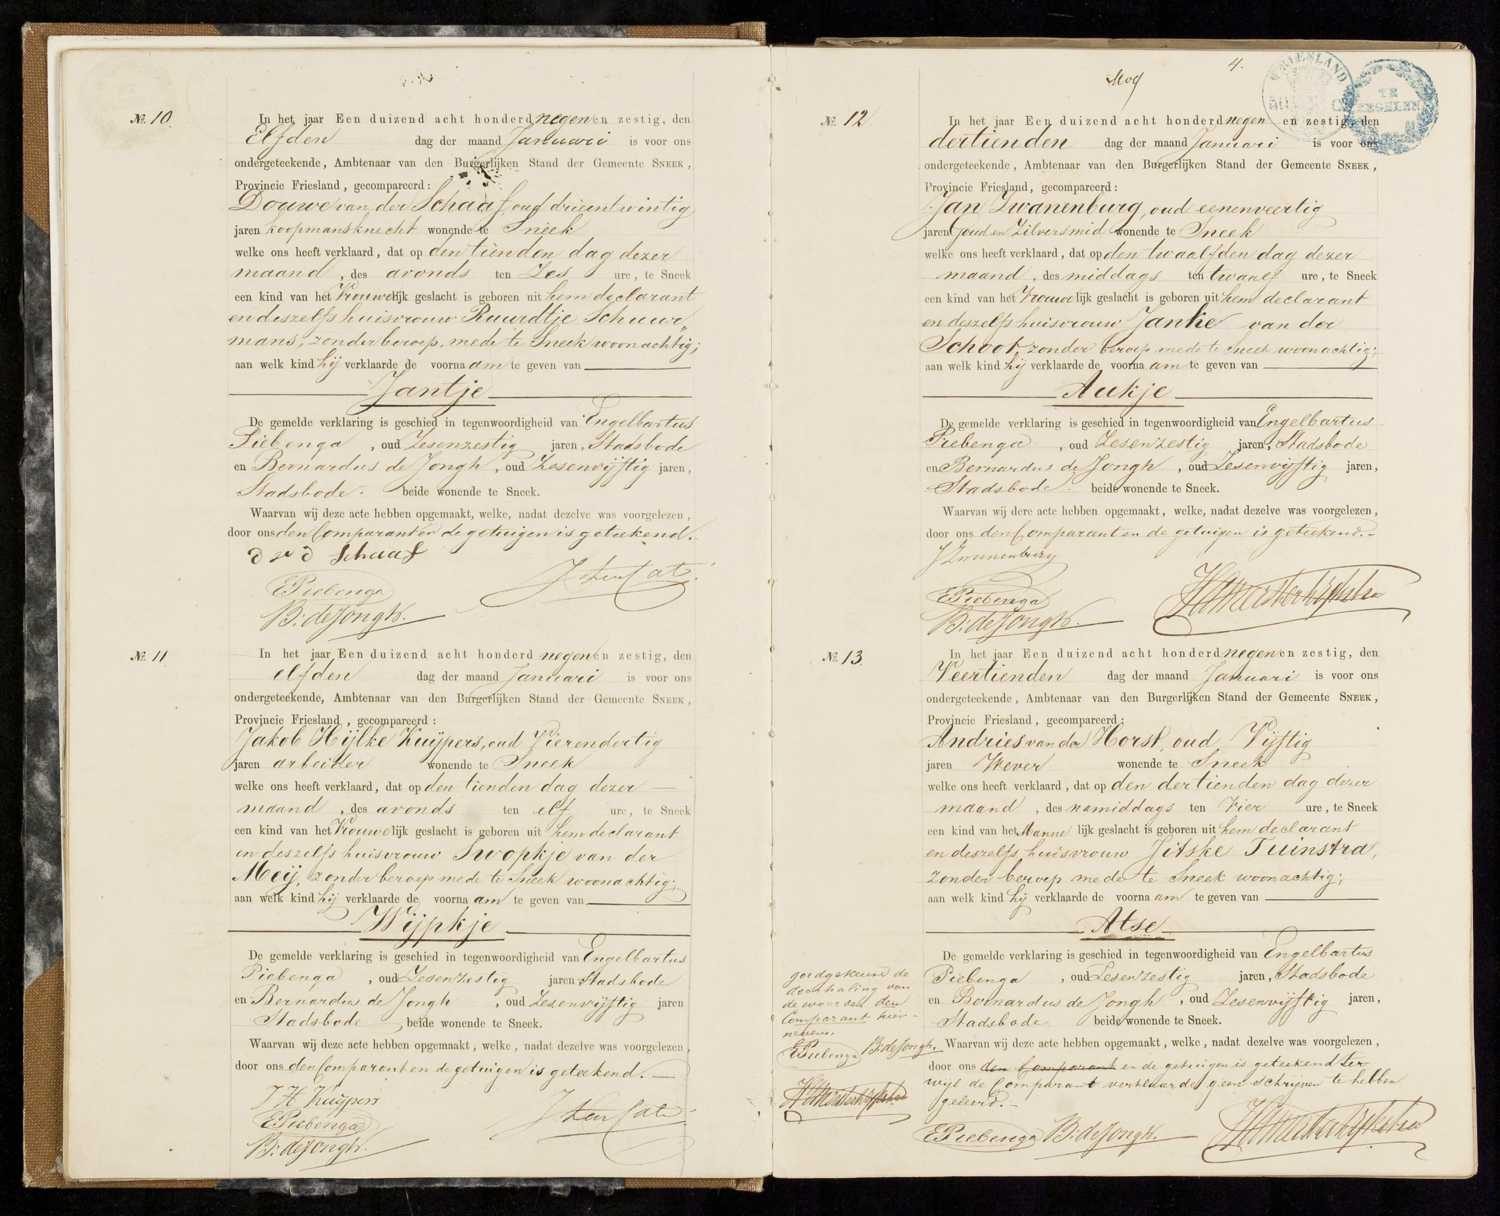 No. 10.
In het jaar Een duizend acht honderd negen en zestig, den
Elfden dag der maand Januari is voor ons
ondergeteekende, Ambtenaar van den Burgerlijken Stand der Gemeente SNEEK,
Provincie Friesland, gecompareerd:
Douwe van der Schaaf, oud drieentwintig
jaren koopmansknecht wonende te Sneek
welke ons heeft verklaard, dat op den tienden dag dezer
maand, des avonds ten Zes ure, te Sneek
een kind van het Vrouwelijk geslacht is geboren uit hem declarant
en deszelfs huisvrouw Ruurdtje Schuur„
mans, zonder beroep, mede te Sneek woonachtig;
aan welk kind hij verklaarde de voornaam te geven van
Jantje
De gemelde verklaring is geschied in tegenwoordigheid van Engelbartus
Piebenga, oud Zesenzestig jaren, Stadsbode
en Bernardus de Jongh, oud Zesenvijftig jaren,
Stadsbode. beide wonende te Sneek.
Waarvan wij deze acte hebben opgemaakt, welke, nadat dezelve was voorgelezen,
door ons den Comparant en de getuigen is geteekend.
D v d Schaaf
J ten Cate
E Piebenga
B: de Jongh.
No. 11
In het jaar Een duizend acht honderd negen en zestig, den
elfden dag der maand Januari is voor ons
ondergeteekende, Ambtenaar van den Burgerlijken Stand der Gemeente SNEEK,
Provincie Friesland, gecompareerd:
Jakob Hijlke Kuijpers, oud Vierendertig
jaren arbeider wonende te Sneek
welke ons heeft verklaard, dat op den tienden dag dezer
maand, des avonds ten elf ure, te Sneek
een kind van het Vrouwelijk geslacht is geboren uit hem declarant
en deszelfs huisvrouw Swopkje van der
Meij, zonder beroep mede te Sneek woonachtig;
aan welk kind hij verklaarde de voornaam te geven van
Wijpkje
De gemelde verklaring is geschied in tegenwoordigheid van Engelbartus
Piebenga, oud Zesenzestig jaren Stadsbode
en Bernardus de Jongh, oud Zesenvijftig jaren
Stadsbode beide wonende te Sneek.
Waarvan wij deze acte hebben opgemaakt, welke, nadat dezelve was voorgelezen,
door ons den Comparant en de getuigen is geteekend.
J H Kuijpers
J ten Cate
E Piebenga
B: de Jongh.
4.
FRIESLAND
TE ZEGELEN
No. 12
In het jaar Een duizend acht honderd negen en zestig, den
dertienden dag der maand Januari is voor ons
ondergeteekende, Ambtenaar van den Burgerlijken Stand der Gemeente SNEEK,
Provincie Friesland, gecompareerd:
Jan Zwanenburg, oud eenenveertig
jaren Goud en Zilversmid wonende te Sneek
welke ons heeft verklaard, dat op den twaalfden dag dezer
maand, des middags ten twaalf ure, te Sneek
een kind van het Vrouwelijk geslacht is geboren uit hem declarant
en deszelfs huisvrouw Janke van der
Schoot, zonder beroep mede te Sneek woonachtig;
aan welk kind hij verklaarde de voornaam te geven van
Aukje
De gemelde verklaring is geschied in tegenwoordigheid van Engelbartus
Piebenga, oud Zesenzestig jaren, Stadsbode
en Bernardus de Jongh, oud Zesenvijftig jaren,
Stadsbode. beide wonende te Sneek.
Waarvan wij dere acte hebben opgemaakt, welke, nadat dezelve was voorgelezen,
door ons den Comparant en de getuigen is geteekend.
J Zwanenburg
E Piebenga
B: de Jongh.
No. 13
In het jaar Een duizend acht honderd negen en zestig, den
Veertienden dag der maand Januari is voor ons
ondergeteekende, Ambtenaar van den Burgerlijken Stand der Gemeente SNEEK,
Provincie Friesland, gecompareerd:
Andries van der Horst, oud Vijftig
jaren Wever wonende te Sneek
welke ons heeft verklaard, dat op den dertienden dag dezer
maand, des namiddags ten Vier ure, te Sneek
een kind van het Mannelijk geslacht is geboren uit hem declarant
en deszelfs huisvrouw Jitske Tuinstra,
zonder beroep mede te Sneek woonachtig;
aan welk kind hij verklaarde de voornaam te geven van
Atse
De gemelde verklaring is geschied in tegenwoordigheid van Engelbartus
Piebenga, oud Zesenzestig jaren, Stadsbode
en Bernardus de Jongh, oud Zesenvijftig jaren,
Stadsbode beide wonende te Sneek.
Waarvan wij deze acte hebben opgemaakt, welke, nadat dezelve was voorgelezen,
door ons den Comparant en de getuigen is geteekend ter
wijl de Comparant verklaarde geen schrijven te hebben
geleerd.
E Piebenga B: de Jongh.
goedgekeurd de
doorhaling van
de woorden den
Comparant hier-
neven.
E Piebenga B: de Jongh.